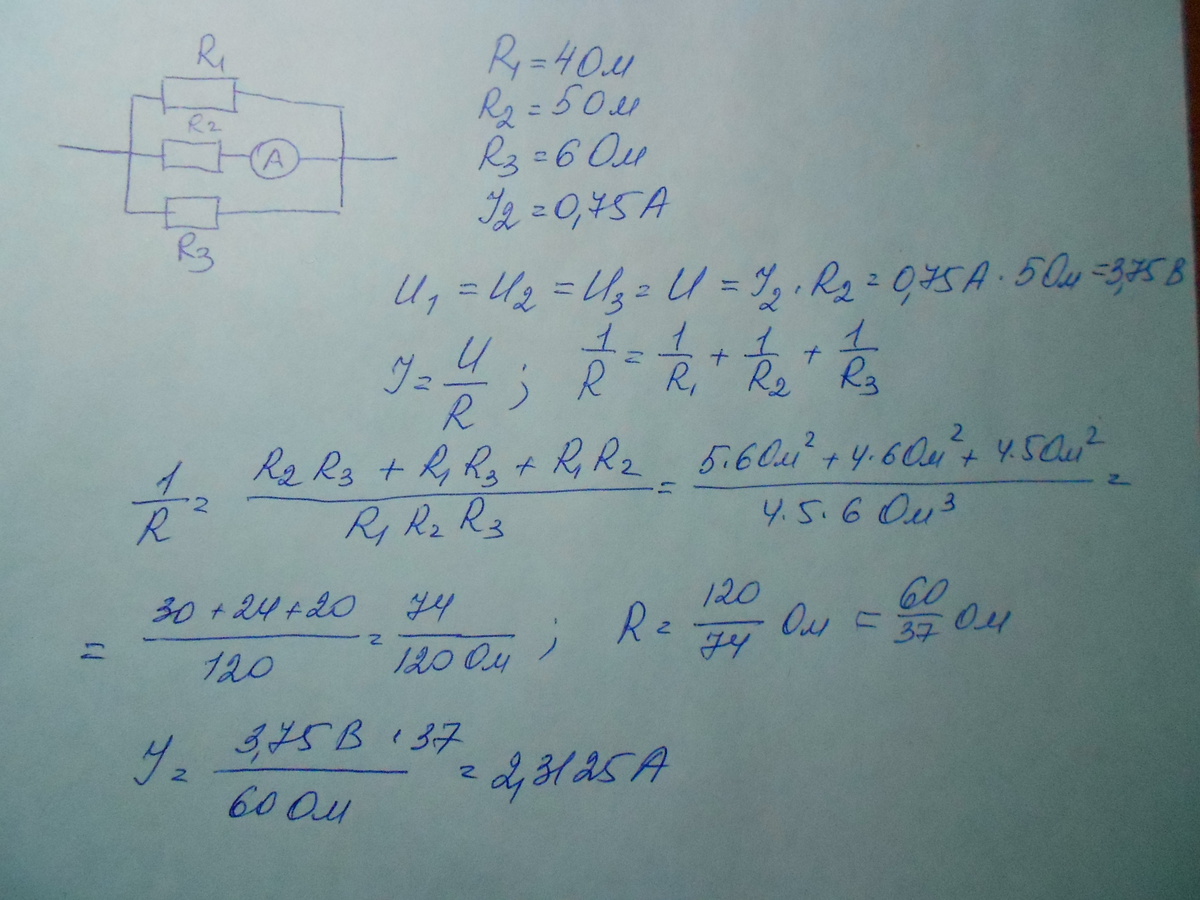 R₁
R₂
A
R₃
R₁ = 4 Ом
R₂ = 5 Ом
R₃ = 6 Ом
I₂ = 0,75 А
U₁ = U₂ = U₃ = U = I₂ · R₂ = 0,75 А · 5 Ом = 3,75 В
I = U/R ; 1/R = 1/R₁ + 1/R₂ + 1/R₃
1/R = (R₂ R₃ + R₁ R₃ + R₁ R₂)/(R₁ R₂ R₃) = (5·6 Ом² + 4·6 Ом² + 4·5 Ом²)/(4·5·6 Ом³) =
= (30 + 24 + 20)/120 = 74/(120 Ом) ; R = 120/74 Ом = 60/37 Ом
I = (3,75 В · 37)/(60 Ом) = 2,3125 А